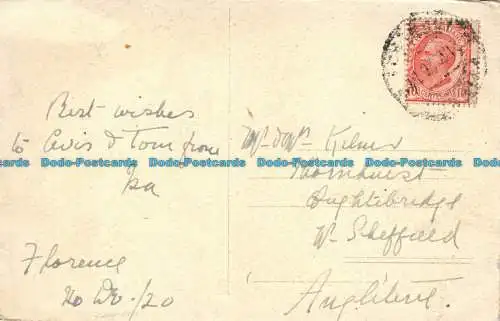 Best wishes
to Avis & Tom from
Florence
20 Dec./20
Mr & Mrs Kilner
Thornhurst
Oughtibridge
Nr. Sheffield
Angleterre.
Dodo-Postcards Dodo-Postcards Dodo-Postcards Dodo-Postcards Dodo-Postcards